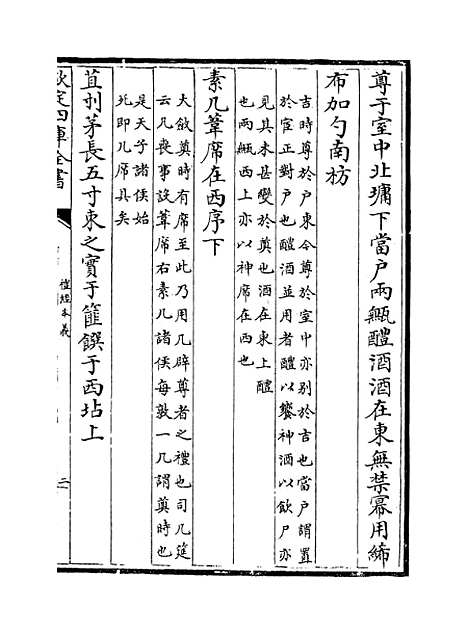 尊于室中北墉下當户兩甒醴酒酒在東無禁冪用綌
布加勺南枋
吉時尊於户東今尊於室中亦别於吉也當户謂置
於室正對户也醴酒並用者醴以饗神酒以飲尸亦
見其未甚變於奠也酒在東上醴
也兩甒西上亦以神席在西也
素几葦席在西序下
大斂奠時有席至此乃用几辟尊者之禮也司几筵
云凡喪事設葦席右素几諸侯每敦一几謂奠時也
是天子諸侯始
死即几席具矣
苴刌茅長五寸束之實于篚饌于西坫上
欽定四庫全書
禮經本義
三